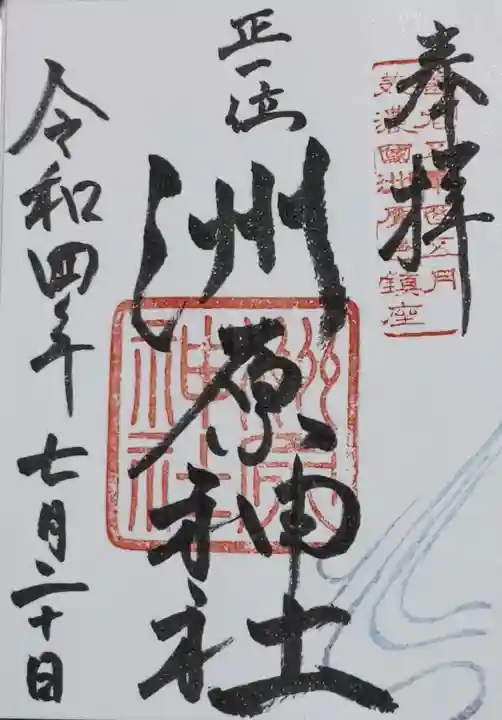 奉拝
美濃國洲原鎮座
正一位
洲原神社
洲原
神社
令和四年七月二十日